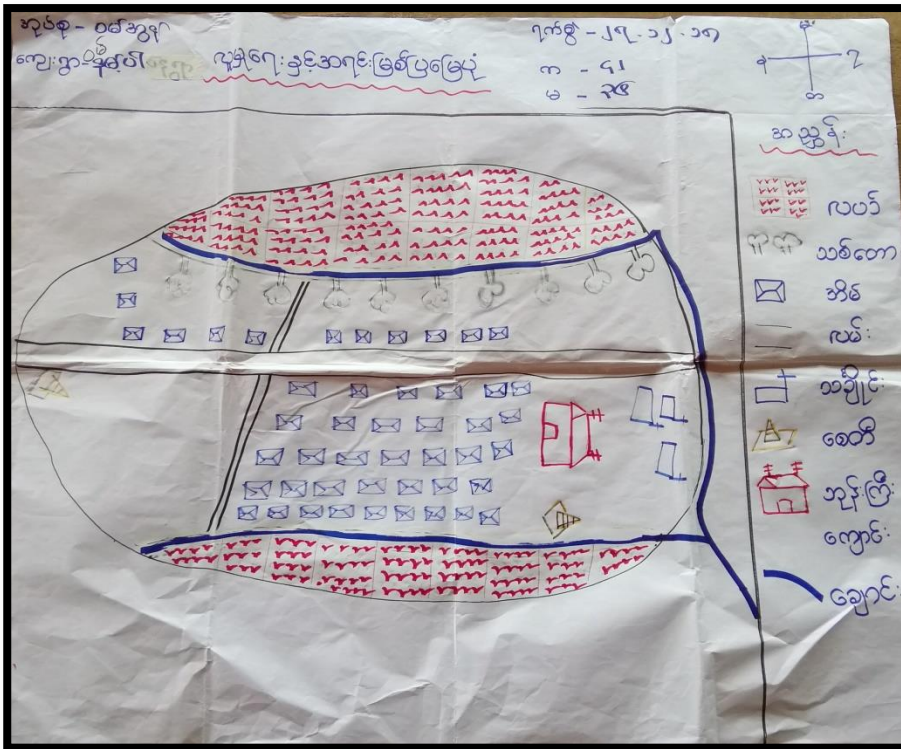 အုပ်စု - ဝမ်အွန်
ကျေးရွာ- နမ့်ပေါ် လူမှုရေးနှင့်အရင်းမြစ်ပြမြေပုံ
ရက်စွဲ - ၂၇.၁၂.၁၈
က - ၄၁
မ - ၃၅
အညွှန်း
လယ်
သစ်တော
အိမ်
လမ်း
သင်္ချိုင်း
စေတီ
ဘုန်းကြီး
ကျောင်း
ချောင်း